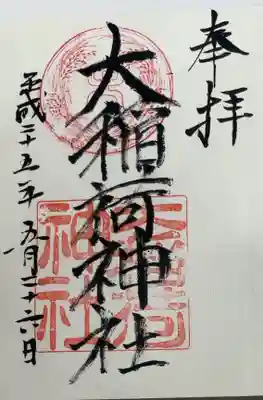 奉拝
大稲荷神社
平成二十五年五月二十六日
大稲荷
神社